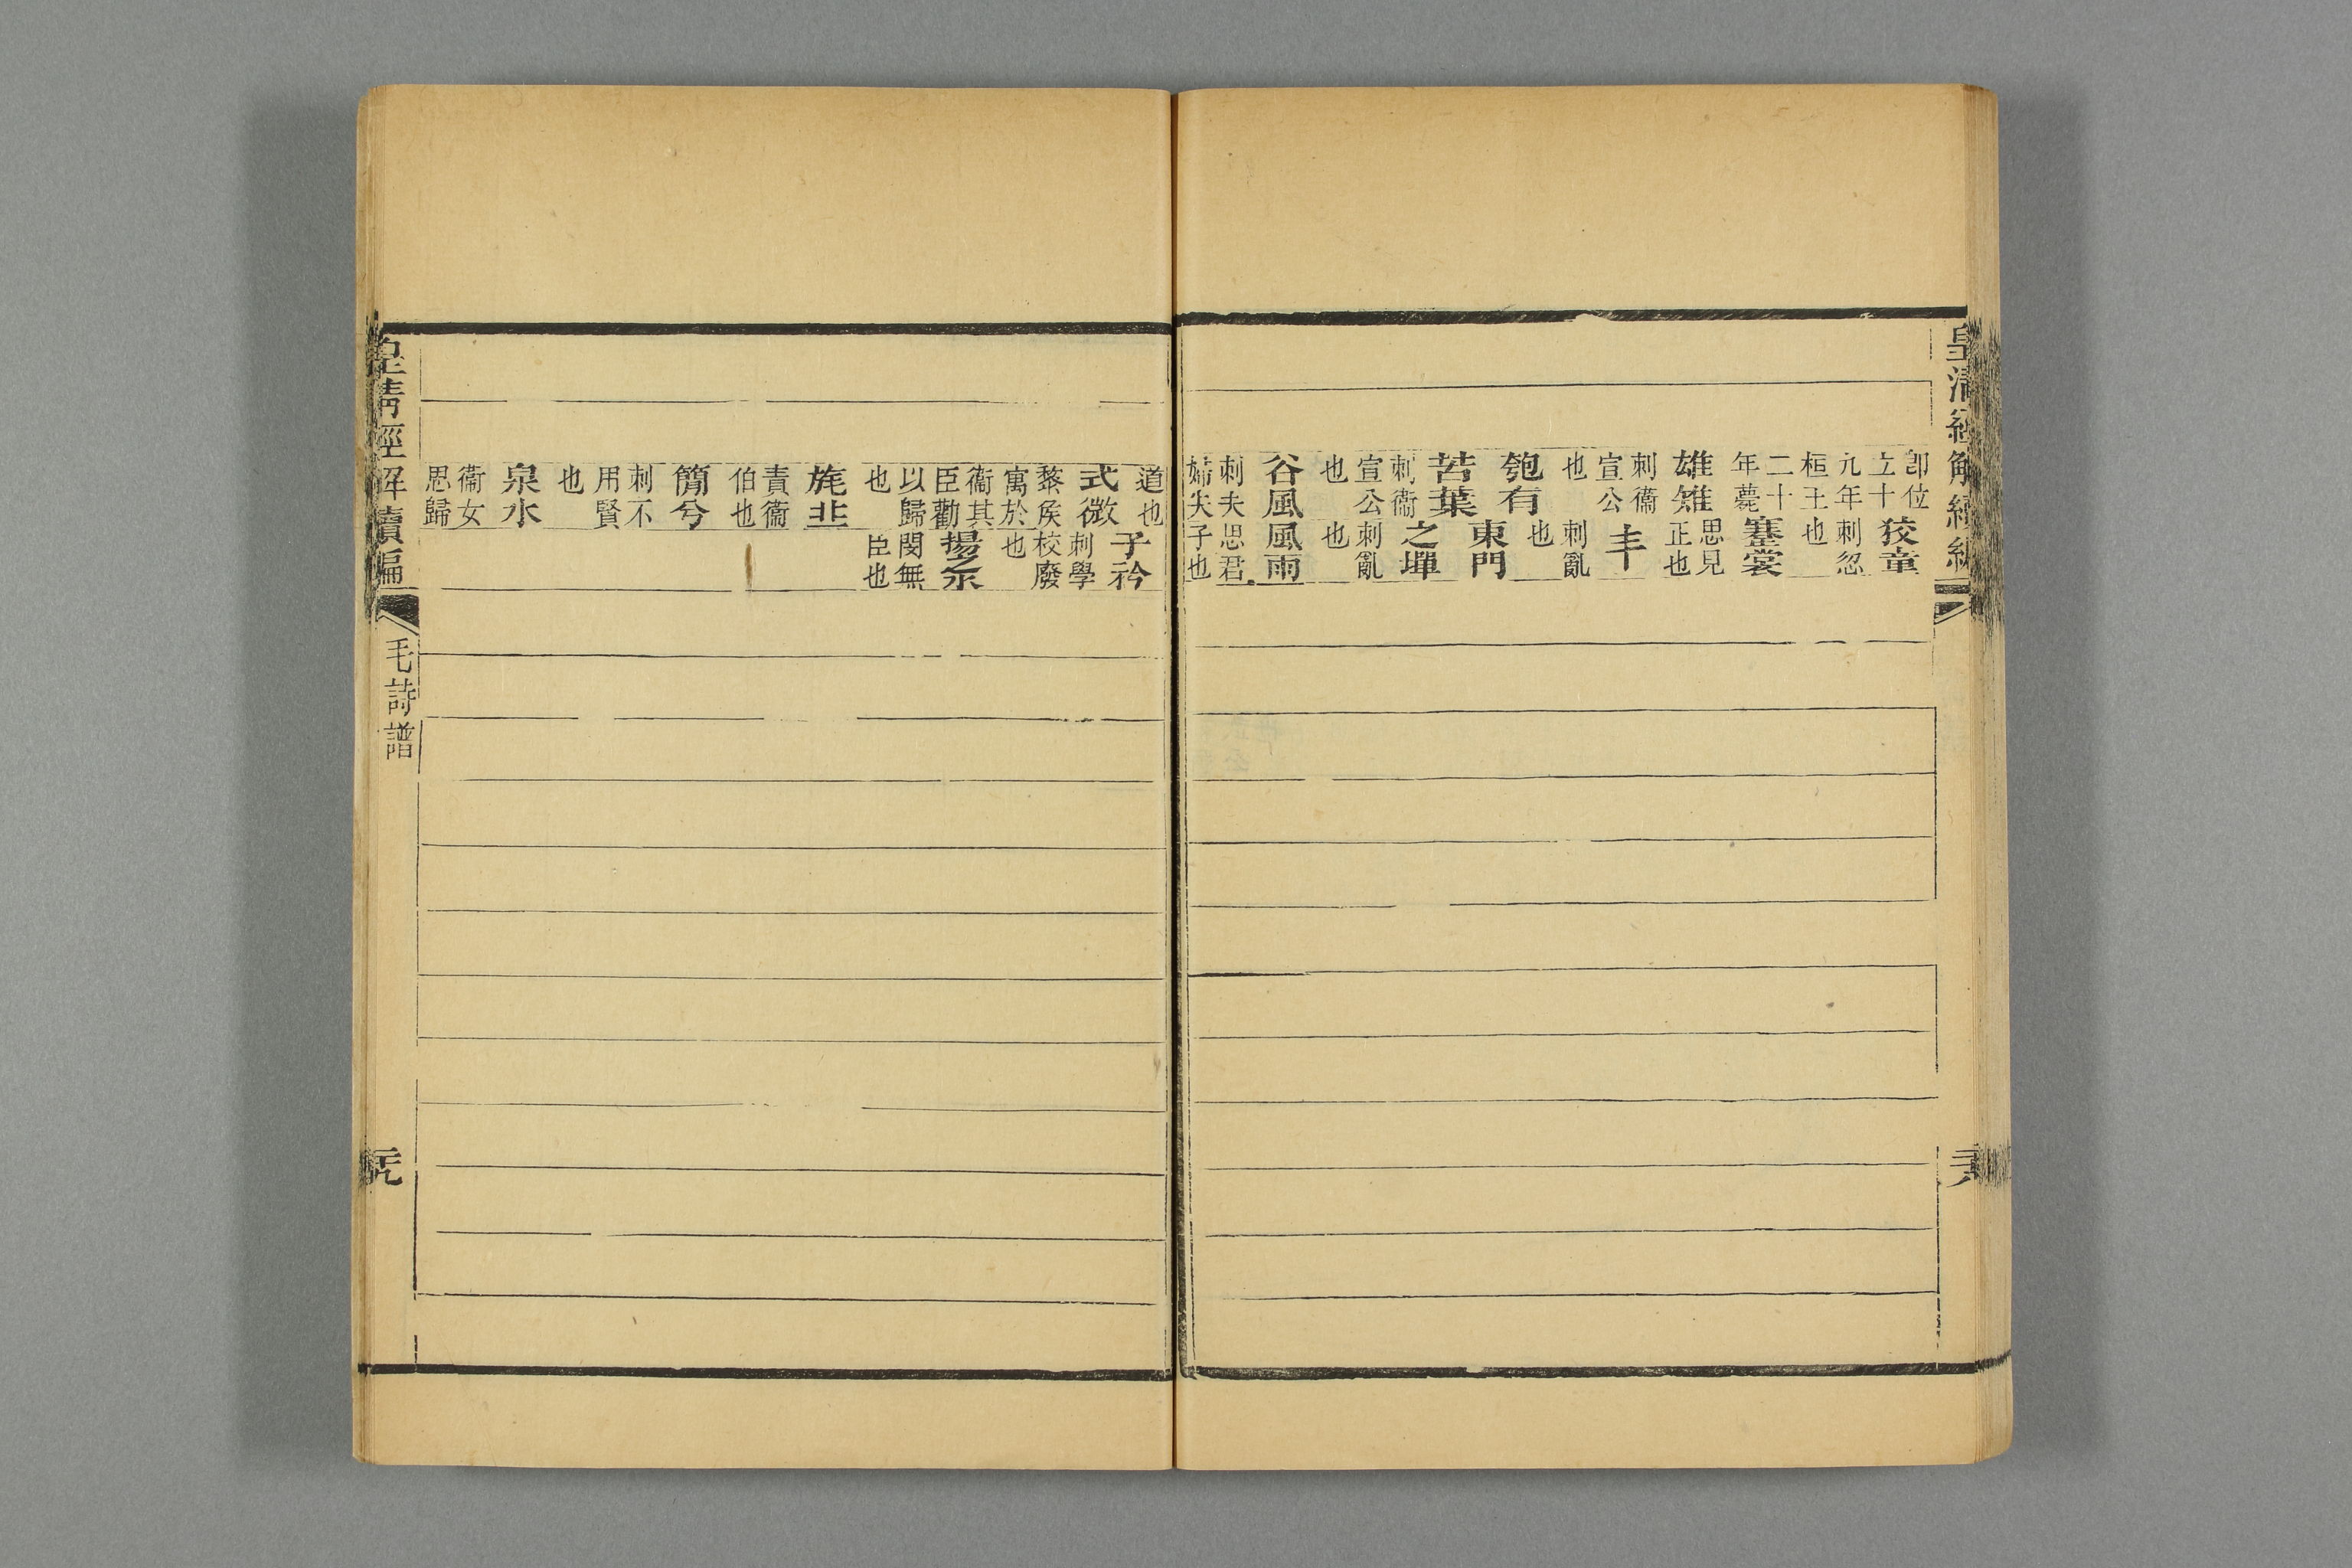 皇清經解續編
即位
立十
九年
桓王
二十
年薨
雄雉
刺衞
宣公
也
匏有
苦葉
刺衞
宣公
也
谷風
刺夫
婦失
狡童
刺忽
也
褰裳
思見
正也
丰
刺亂
也
東門
之墠
刺亂
也
風雨
思君
子也
道也
式微
黎侯
寓於
衞其
臣勸
以歸
也
旄丠
責衞
伯也
簡兮
刺不
用賢
也
泉水
衞女
思歸
子衿
刺學
校廢
也
揚之水
閔無
臣也
皇清經解續編
毛詩譜